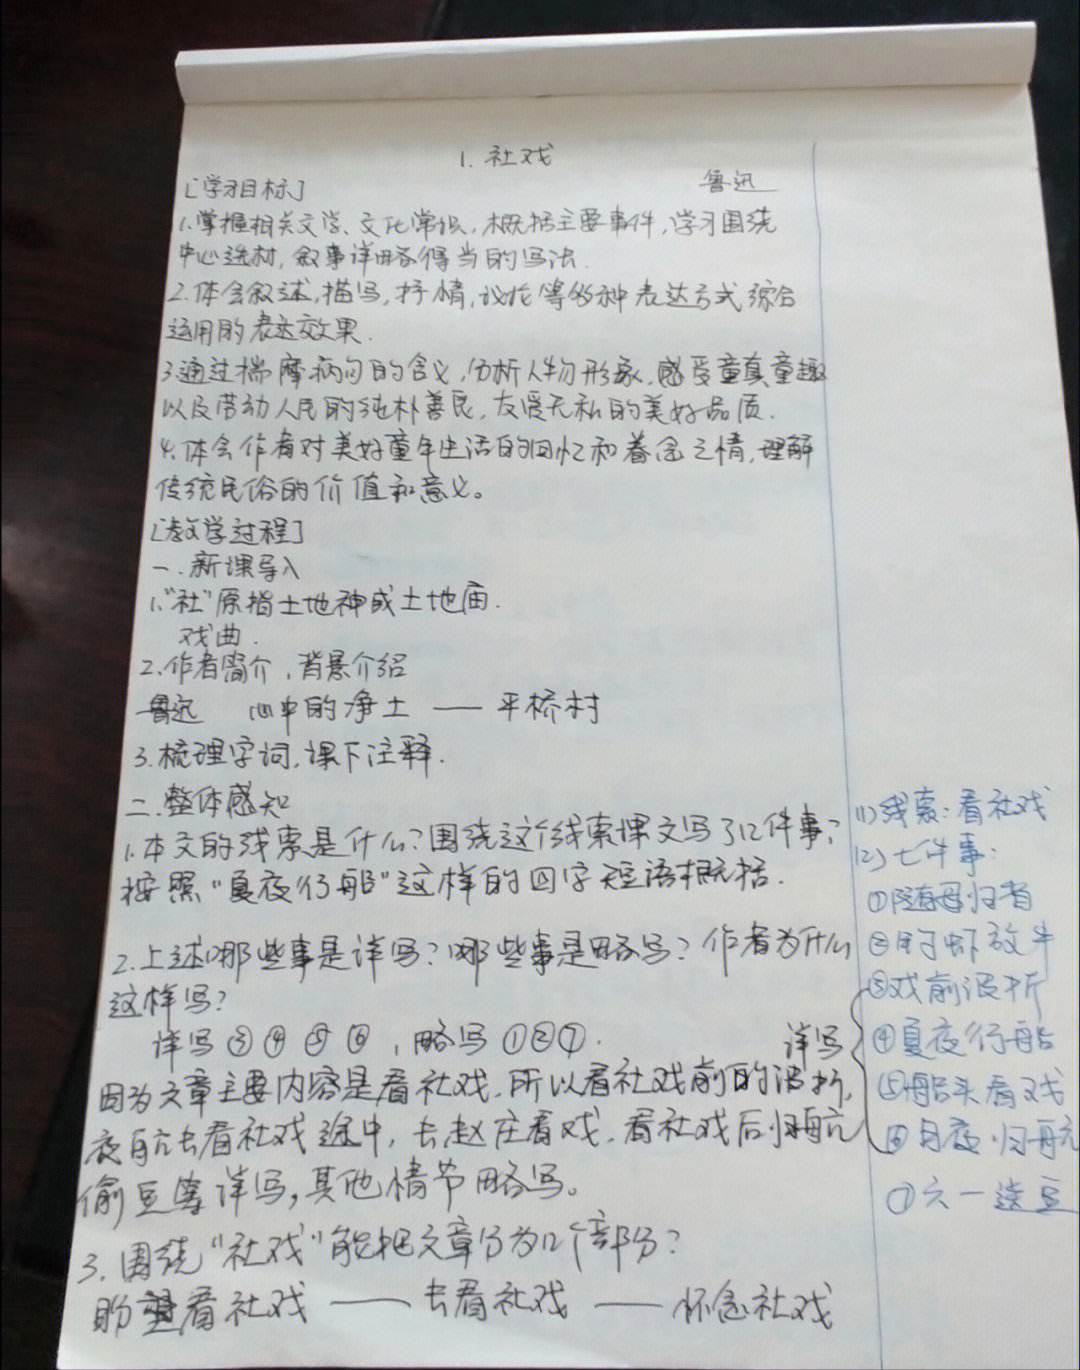 1. 社戏
鲁迅
[学习目标]
1.掌握相关文学、文化常识,概括主要事件,学习围绕
中心选材,叙事详略得当的写法.
2.体会叙述,描写,抒情,议论等多种表达方式综合
运用的表达效果.
3.通过揣摩病句的含义,分析人物形象,感受童真童趣
以及劳动人民的纯朴善民,友爱无私的美好品质.
4.体会作者对美好童年生活的回忆和眷念之情,理解
传统民俗的价值和意义。
[教学过程]
一.新课导入
1."社"原指土地神或土地庙.
戏曲.
2.作者简介,背景介绍
鲁迅 心中的净土 —— 平桥村
3.梳理字词,课下注释.
二.整体感知
1.本文的线索是什么?围绕这个线索课文写了几件事?
按照"夏夜行船"这样的四字短语概括.
2.上述哪些事是详写?哪些事是略写?作者为什么
这样写?
详写③④⑤⑥,略写①②⑦.
因为文章主要内容是看社戏,所以看社戏前的波折,
夜航去看社戏途中,去赵庄看戏,看社戏后归航
偷豆等详写,其他情节略写。
3.围绕"社戏"能把文章分为几个部分?
盼望看社戏 —— 去看社戏 —— 怀念社戏
(1)线索:看社戏
(2)七件事:
①随母归省
②钓虾放牛
③戏前波折
④夏夜行船
⑤船头看戏
⑥月夜归航
详写
⑦六一送豆